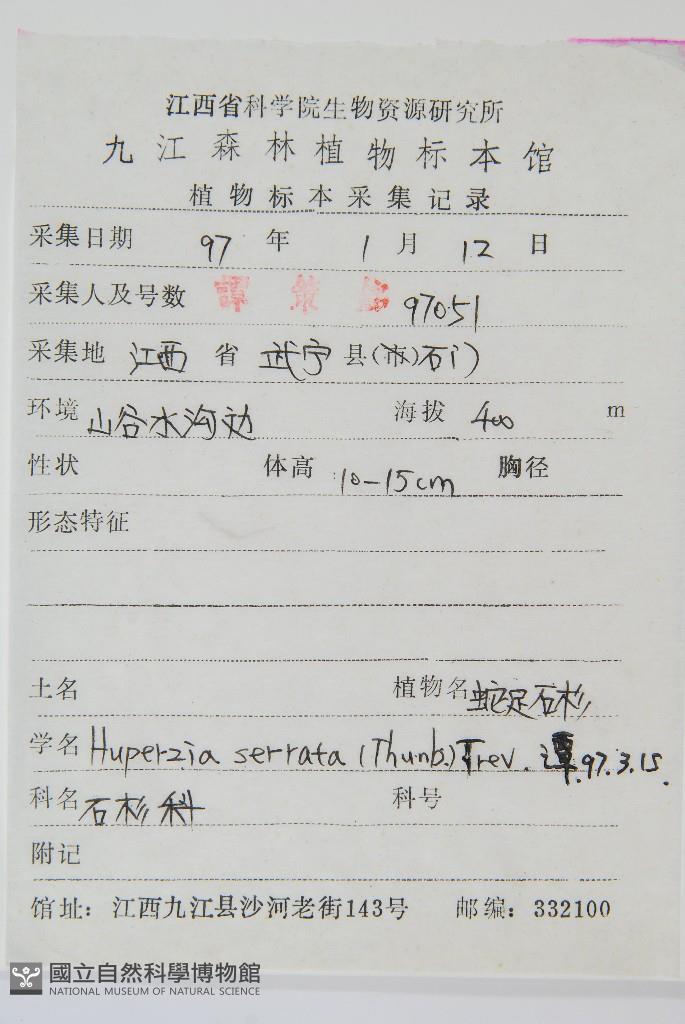 江西省科学院生物资源研究所
九江森林植物标本馆
植物标本采集记录
采集日期 97 年 1 月 12 日
采集人及号数 譚策 97051
采集地 江西 省 武宁 县(市)石门
环境 山谷水沟边 海拔 400 m
性状 体高 10-15cm 胸径
形态特征
土名 植物名 蛇足石杉
学名 Huperzia serrata (Thunb.) Trev. 潭 97.3.15.
科名 石杉科 科号
附记
馆址：江西九江县沙河老街143号 邮编：332100
國立自然科學博物館
NATIONAL MUSEUM OF NATURAL SCIENCE